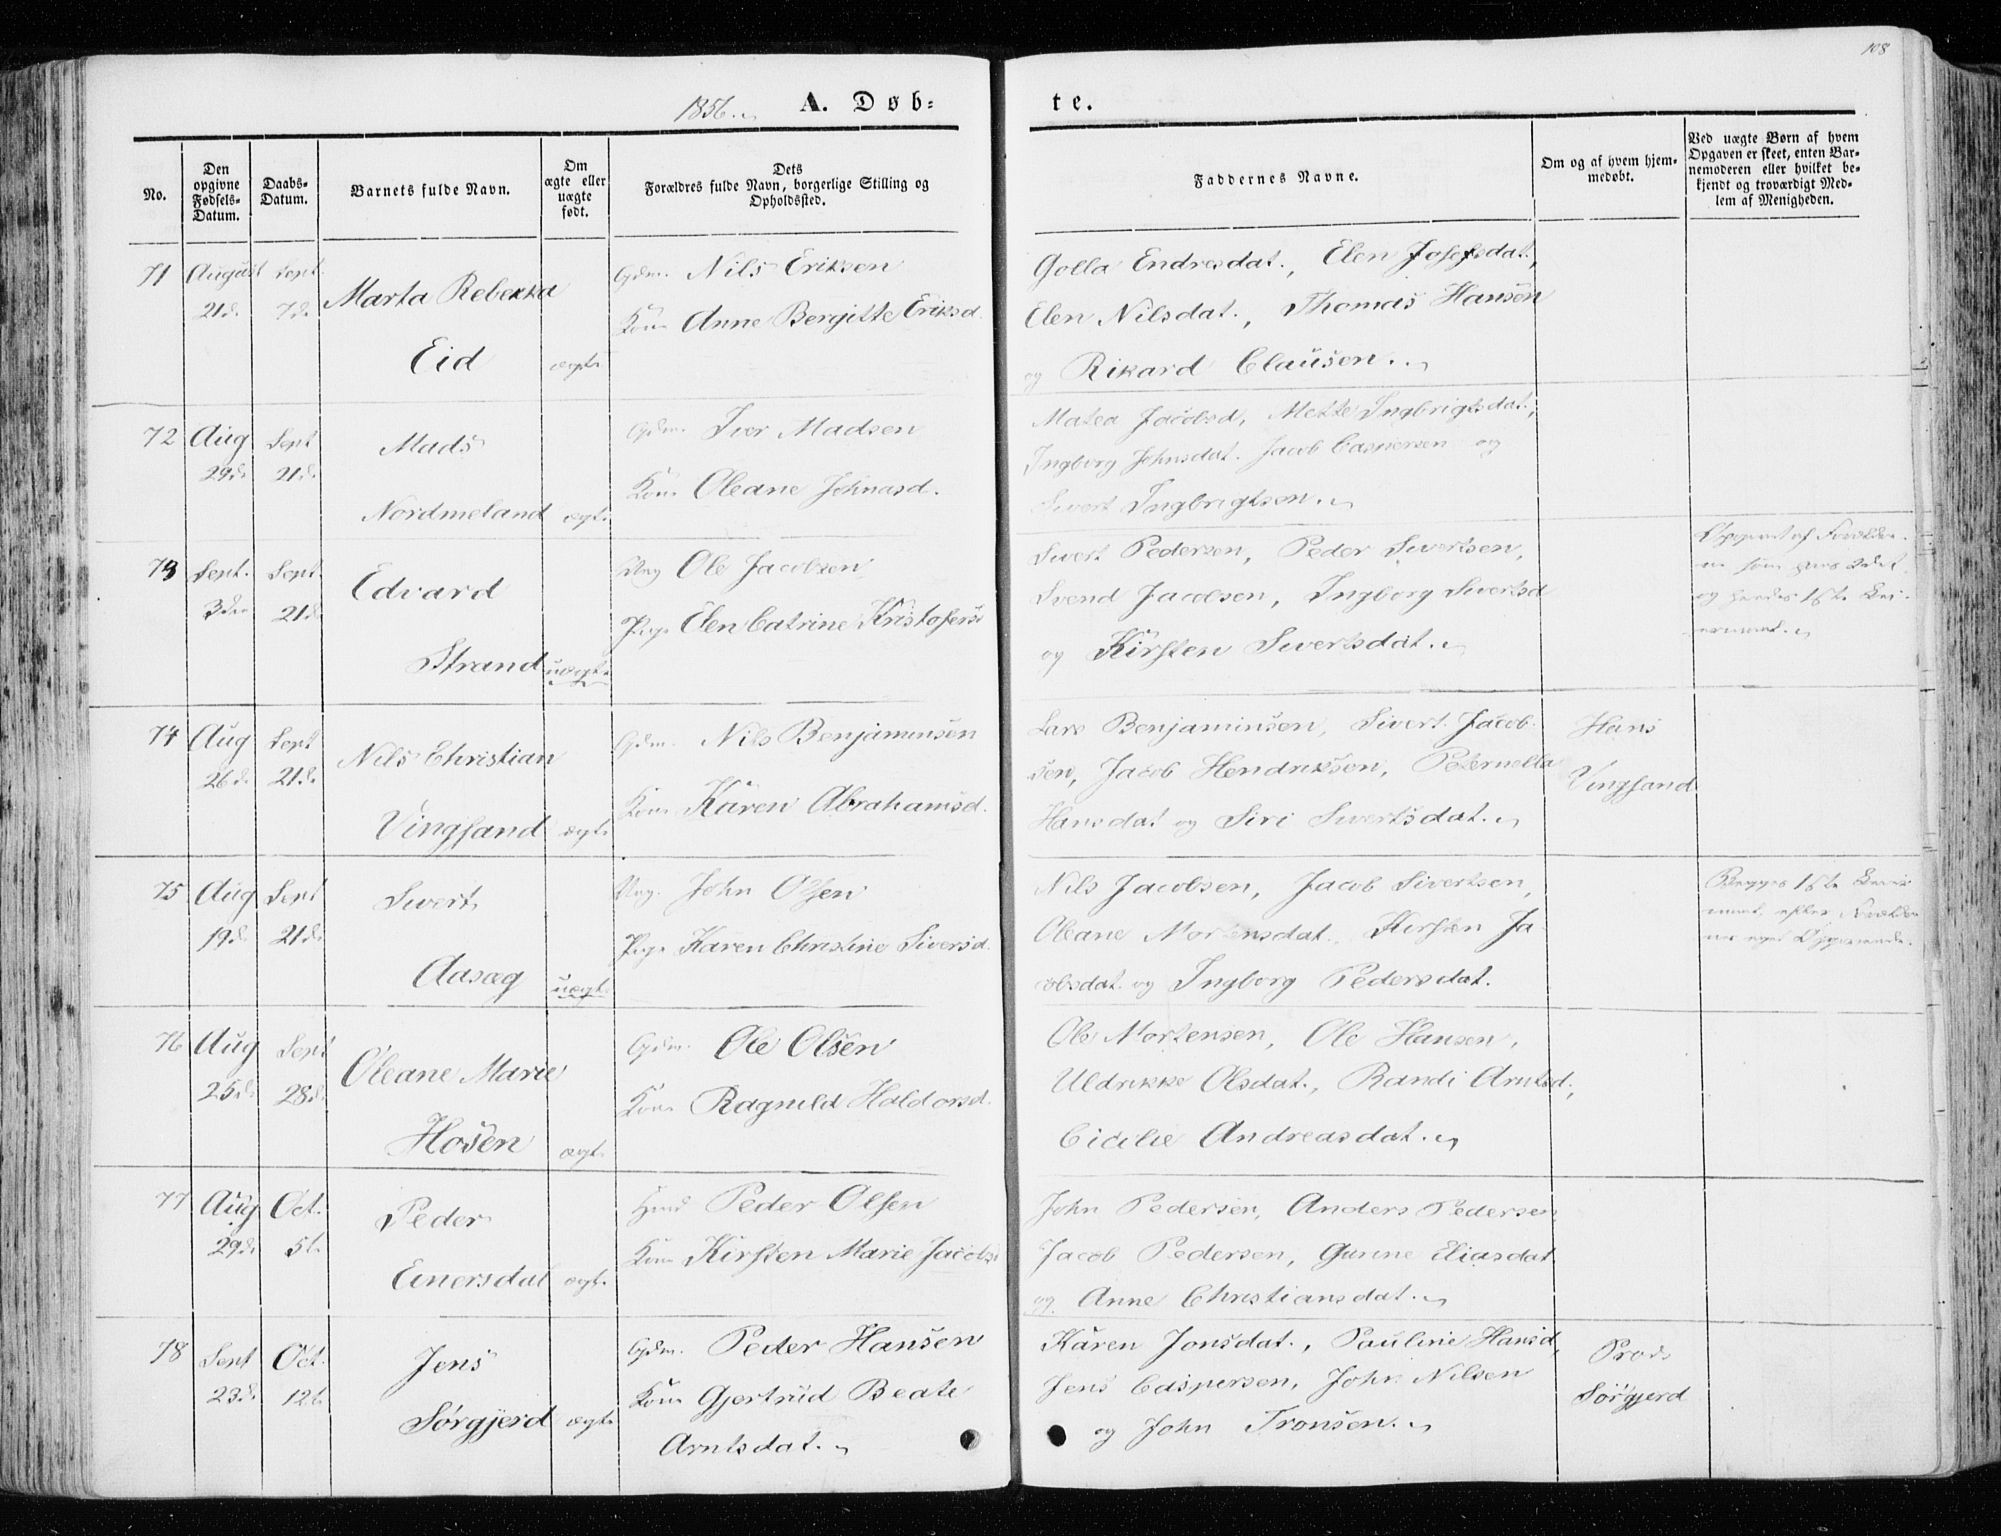 108
1856.
A. Døb=
te.
No.
Den opgivne Fødsels-Datum.
Daabs-Datum.
Barnets fulde Navn.
Om ægte eller uægte født.
Dets Forældres fulde Navn, borgerlige Stilling og Opholdssted.
Faddernes Navne.
Om og af hvem hjem-medøbt.
Ved uægte Børn af hvem Opgaven er skeet, enten Bar-nemoderen eller hvilket be-kjendt og troværdigt Med-lem af Menigheden.
71 August Sept. Gdm. Nils Eriksen Golla Endresdat., Elen Josefsdat.,
21d. 7d. Marta Rebekka Kone Anne Bergitte Eriksd. Elen Nilsdat., Thomas Hansen
Eid ægte og Rikard Clausen.
72 Aug Sept Mads Gdm. Iver Madsen Matea Jacobsd, Mette Ingbrigtsdat.,
29d. 21d. Kone Oleane Johnasd. Ingborg Johnsdat. Jacob Caspersen og
Nordmeland ægte Sivert Ingbrigtsen.
73 Sept. Sept. Edvard Ung Ole Jacobsen Sivert Pedersen, Peder Sivertsen,
3die 21d. Pige Elen Catrine Kristofersd Svend Jacobsen, Ingborg Sivertsd
Strand uægte og Kirsten Sivertsdat.
74 Aug Sept Nils Christian Gdm. Nils Benjaminsen Lars Benjaminsen, Sivert Jacob- Hans
26d. 21d. Kone Karen Abrahamsd. sen, Jacob Hendriksen, Peternella Vingsand
Vingsand ægte Hansdat og Siri Sivertsdat.
75 Aug Sept Sivert Ung. John Olsen Nils Jacobsen, Jacob Sivertsen,
19d. 21d. Pige Karen Christine Siversd. Oleane Mortensdat., Kirsten Ja-
Aasæg uægte cobsdat. og Ingborg Pedersdat.
76 Aug Sept Oleane Marie Gdm. Ole Olsen Ole Mortensen, Ole Hansen,
25d. 28d. Kone Ragnild Haldorsd. Uldrikke Olsdat., Randi Arntsd.,
Hosen ægte Cicilie Andreasdat.
77 Aug Oct. Peder Huusmd Peder Olsen John Pedersen, Anders Pedersen,
29d. 5t. Kone Kirsten Marie Jacobsd Jacob Pedersen, Gunne Eliasdat.
Einersdal ægte og Anne Christiansdat.
78 Sept Oct. Jens Gdm. Peder Hansen Karen Jonsdat., Pauline Hansd,
23d. 12t. Kone Gjertrud Beate Jens Caspersen, John Nilsen Sørgjerd
Sørgjerd ægte Arntsdat. og John Tronsen.